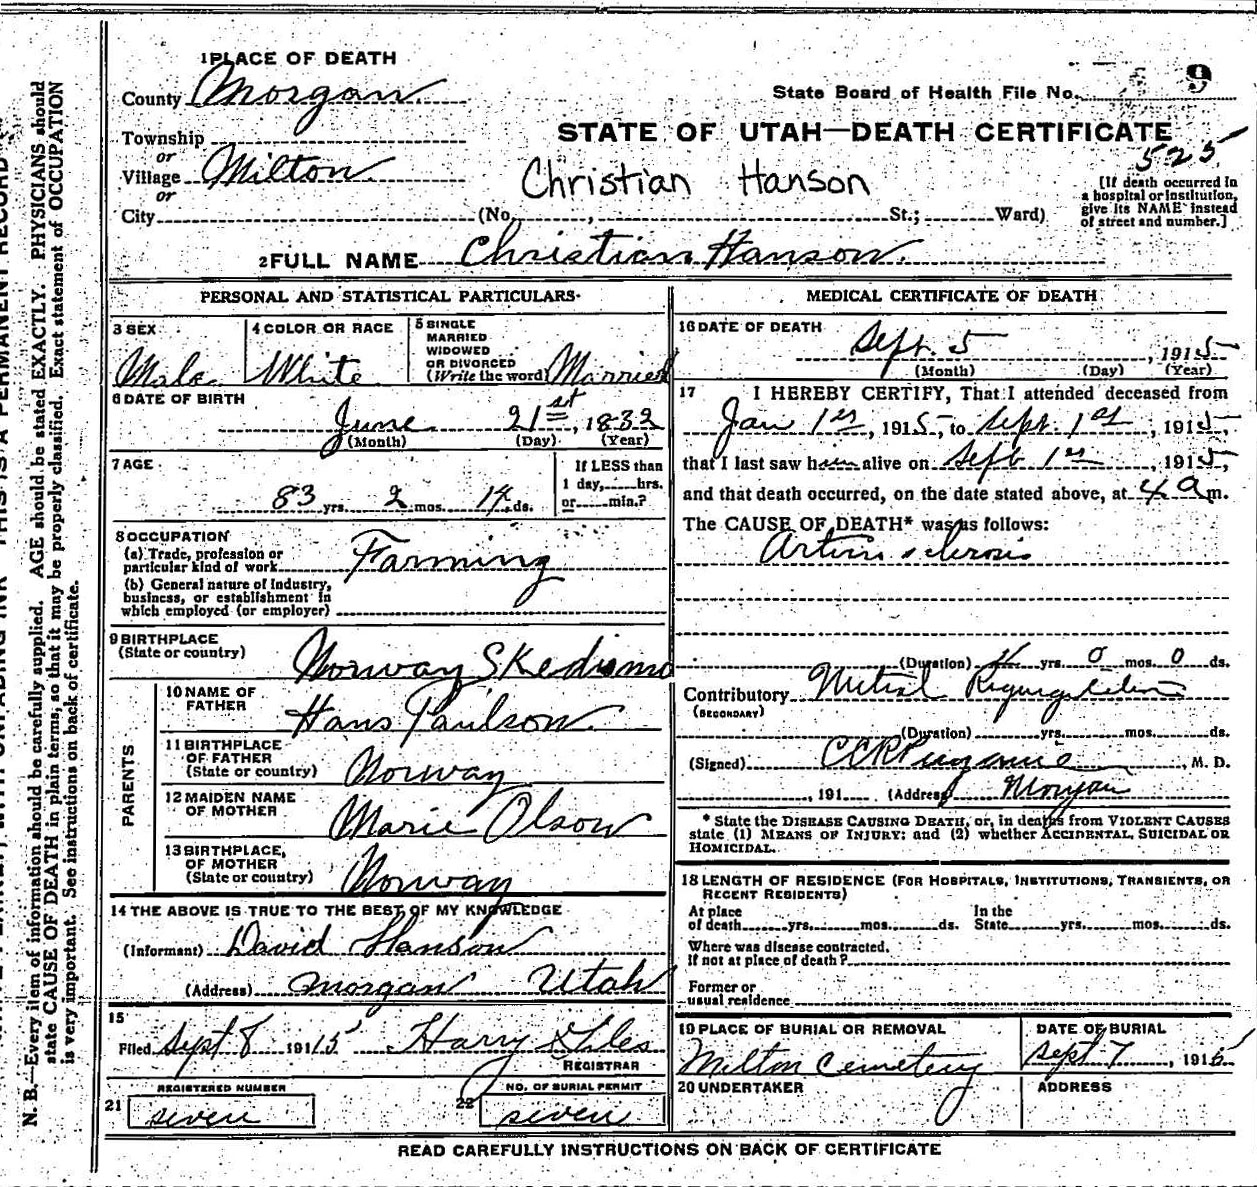 1 PLACE OF DEATH
County Morgan
State Board of Health File No. 9
Township
or
Village Milton
or
City (No. , St.; Ward)
STATE OF UTAH—DEATH CERTIFICATE
525
Christian Hanson
[If death occurred in
a hospital or institution,
give its NAME instead
of street and number.]
2 FULL NAME Christian Hanson.
PERSONAL AND STATISTICAL PARTICULARS
3 SEX
Male
4 COLOR OR RACE
White
5 SINGLE
MARRIED
WIDOWED
OR DIVORCED
(Write the word) Married
6 DATE OF BIRTH
June 21st, 1832
(Month) (Day) (Year)
7 AGE
83 yrs. 2 mos. 14 ds.
If LESS than
1 day, hrs.
or min.?
8 OCCUPATION
(a) Trade, profession or
particular kind of work Farming
(b) General nature of Industry,
business, or establishment in
which employed (or employer)
9 BIRTHPLACE
(State or country) Norway Skedismo
PARENTS
10 NAME OF
FATHER Hans Paulson
11 BIRTHPLACE
OF FATHER
(State or country) Norway
12 MAIDEN NAME
OF MOTHER Marie Olson
13 BIRTHPLACE,
OF MOTHER
(State or country) Norway
14 THE ABOVE IS TRUE TO THE BEST OF MY KNOWLEDGE
(Informant) David Hanson
(Address) Morgan Utah
15
Filed Sept 8 19115 Harry Giles
REGISTRAR
REGISTERED NUMBER
21 seven
NO. OF BURIAL PERMIT
22 seven
MEDICAL CERTIFICATE OF DEATH
16 DATE OF DEATH
Sept. 5, 1915
(Month) (Day) (Year)
17 I HEREBY CERTIFY, That I attended deceased from
Jan 1st, 1915, to Sept. 1st, 1915,
that I last saw him alive on Sept 1st, 1915,
and that death occurred, on the date stated above, at 4 a m.
The CAUSE OF DEATH* was as follows:
Arterio sclerosis
(Duration) yrs. 0 mos. 0 ds.
Contributory Mitral Regurgitation
(SECONDARY)
(Duration) yrs. mos. ds.
(Signed) , M. D.
, 191 (Address) Morgan
* State the DISEASE CAUSING DEATH, or, in deaths from VIOLENT CAUSES
state (1) MEANS OF INJURY; and (2) whether ACCIDENTAL, SUICIDAL OR
HOMICIDAL.
18 LENGTH OF RESIDENCE (FOR HOSPITALS, INSTITUTIONS, TRANSIENTS, OR
RECENT RESIDENTS)
At place
of death yrs. mos. ds.
In the
State yrs. mos. ds.
Where was disease contracted.
If not at place of death?
Former or
usual residence
19 PLACE OF BURIAL OR REMOVAL
Milton Cemetery
DATE OF BURIAL
Sept 7, 1915
20 UNDERTAKER
ADDRESS
READ CAREFULLY INSTRUCTIONS ON BACK OF CERTIFICATE
N. B.—Every item of information should be carefully supplied. AGE should be stated EXACTLY. PHYSICIANS should
state CAUSE OF DEATH in plain terms, so that it may be properly classified. Exact statement of OCCUPATION
is very important. See instructions on back of certificate.